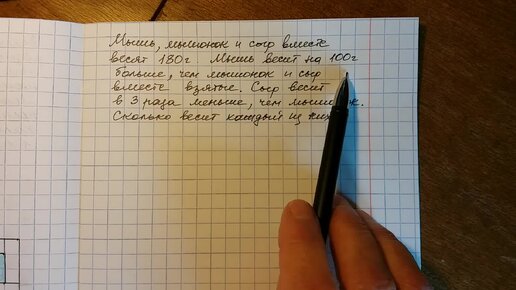 Мышь, мышонок и сыр вместе
весят 180г Мышь весит на 100г
больше, чем мышонок и сыр
вместе взятые. Сыр весит
в 3 раза меньше, чем мышонок.
Сколько весит каждый из них